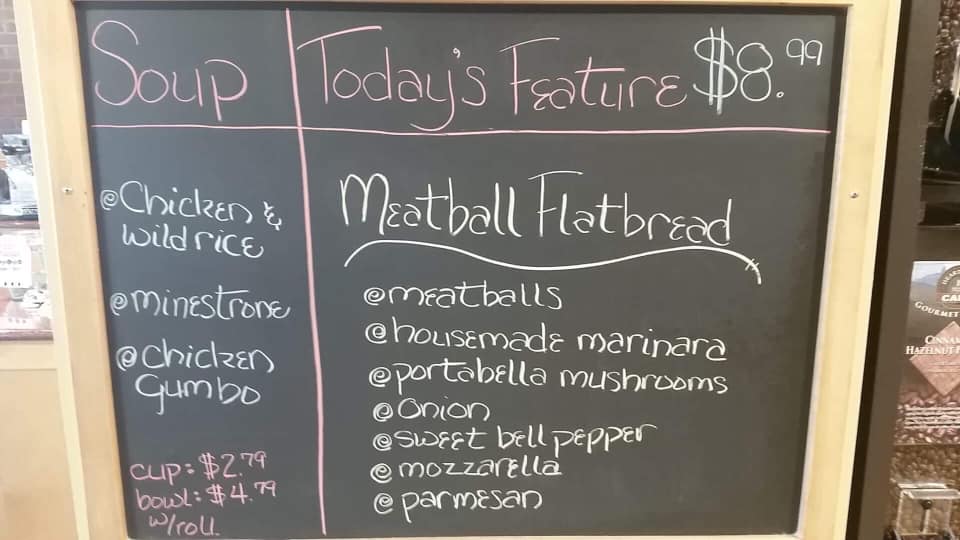 Soup
@Chicken &
wild rice
@minestrone
@Chicken
Gumbo
cup: $2.79
bowl: $4.79
w/roll.
Today's Feature $8.99
Meatball Flatbread
@meatballs
@housemade marinara
@portabella mushrooms
@onion
@sweet bell pepper
@mozzarella
@parmesan
GOURMET